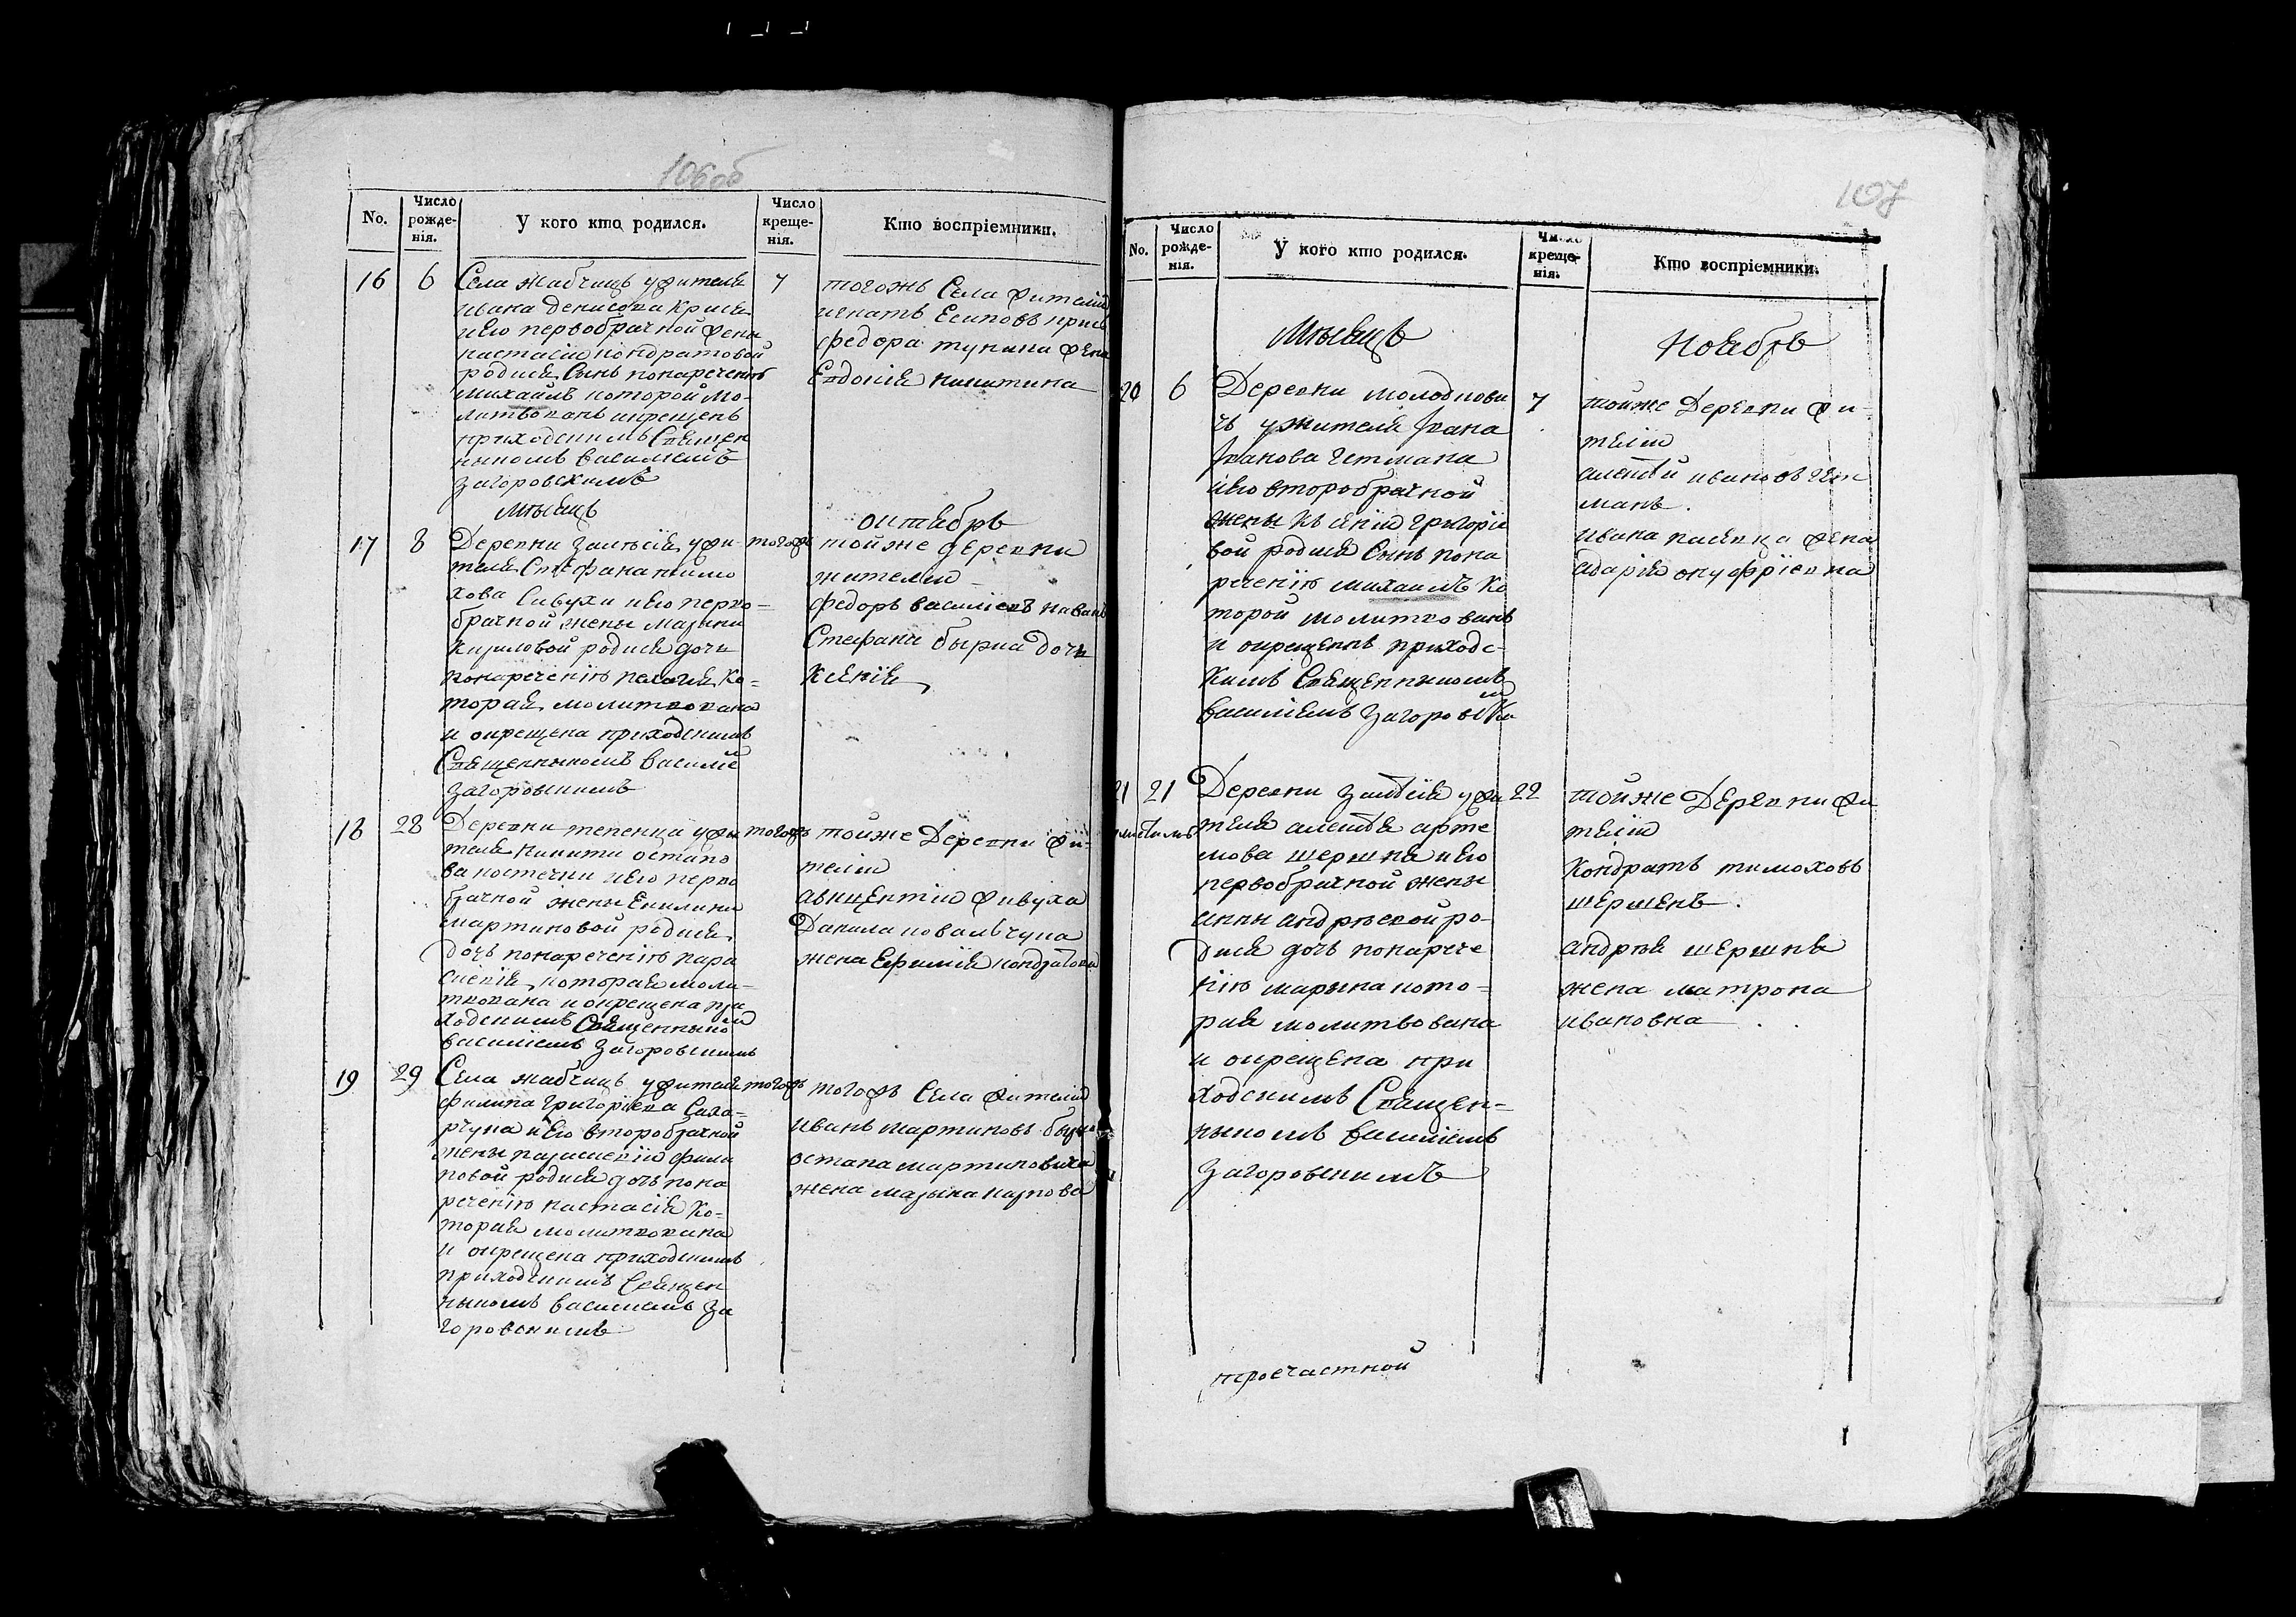 106об
No.
Число рожденія.
У кого кто родился.
Число крещенія.
Кто воспріемники.
16
6
Села Жабчицъ ужителя
ивана денисова
иего первобрачной жены
настасіи кондратовой
родился Сынъ понареченію
михаилъ которой мо-
литвованъ икрещенъ
приходскимъ Священ
ныкомъ василіемъ
загоровскимъ
7
тогожъ Села жителіи
игнатъ Есиповъ
федора жена
Евдокія никитина
Мѣсяцъ
октябръ
17
8
Деревни Залѣсія ужи-
теля Стефана
хова Сивухи иего перво-
брачной жены Марыни
Кириловой родися дочь
понареченію пелагія ко-
торая молитвована
и окрещена приходскимъ
Священныкомъ василіем
загоровскимъ
тогожъ
тойже деревни
жителіи
федоръ василіевъ
Стефана дочь
Ксенія
18
28
Деревни тепенца ужи
теля Никити остапо
ва костечки иего перво
брачной жены Екилины
мартиновой родися
дочь понареченію пара
скевія которая моли-
твована и окрещена при
ходскимъ Священныком
василіемъ Загоровскимъ
тогожъ
тойже Деревни жи-
теліи
Данила ковальчука
жена Ефимія кондратова
19
29
Села жабчицъ ужителя
филипа григоріева Саха-
рчука иего второбрачной
жены параскевіи фили
повой родися дочь пона
реченію настасія ко-
торая молитвована
и окрещена приходскимъ
приходскимъ Священ
ныкомъ василіемъ за
горовскимъ
тогожъ
тогожъ Села жителіи
иванъ мартиновъ
остапа мартиновича
жена марына карпова
107
No.
Число рожденія.
У кого кто родился.
Число крещенія.
Кто воспріемники.
Мѣсяцъ
Ноябръ
20
6
Деревни молодкови
чъ ужителя Ивана
Иванова Гетмана
иего второбрачной
жены Ксеніи григоріе
вой родися Сынъ пона
реченію михаилъ ко
торой молитвованъ
и окрещенъ приходс-
кимъ Священныкомъ
василіемъ Загоровским
7
тойже Деревни жи-
теліи
алексѣй ивановъ гет
манъ.
ивана жена
онуфріевна
21
21
Деревни залѣсія ужи
теля алексѣя арте
мова шершня иего
первобрачной жены
анны андрѣевой ро-
дися дочь понарече
нію марына кото-
рая молитвована
и окрещена при
ходскимъ Священ-
ныкомъ василіемъ
загоровскимъ
22
тойже Деревни жи
теліи
Кондратъ тимоховъ
шершенъ.
андрѣя шершня
жена матрона
ивановна